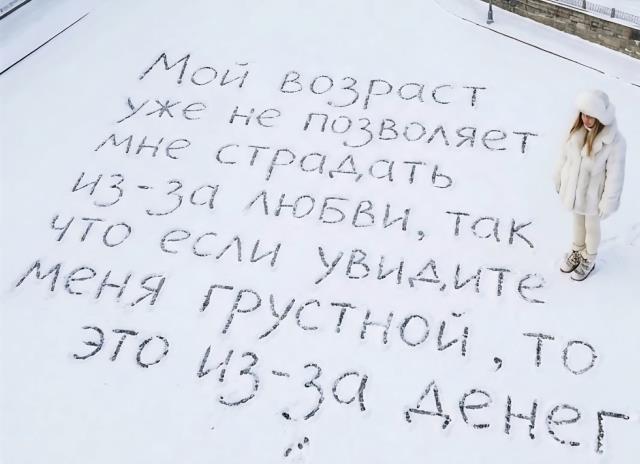 Мой возраст
уже не позволяет
мне страдать
из-за любви, так
что если увидите
меня грустной, то
это из-за денег